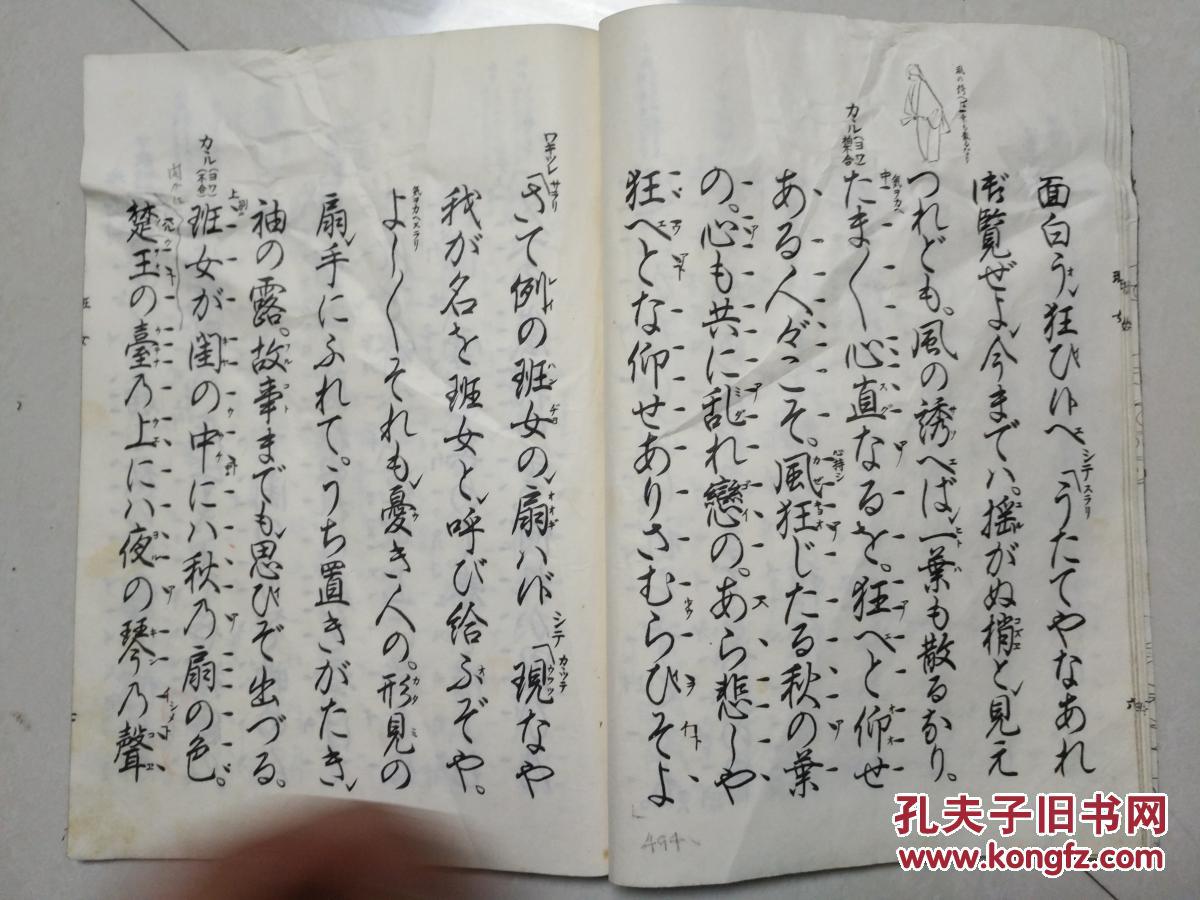 面白う狂ひ候へ シテ スラリ「うたてやなあれ
御覧ぜよ。今までハ。揺がぬ梢と見え
つれども。風の誘へば一葉も散るなり。
たま〱心直なるを。狂へと仰せ
ある人々こそ。風狂じたる秋の葉
の。心も共に乱れ戀の。あら悲しや
狂へとな仰せありさむらひそよ
ワキツレ サラリ「さて例の班女の扇ハ候 シテ カッテ「現なや
我が名を班女と。呼び給ふぞや。
よし〱それも憂き人の。形見の
扇手にふれて。うち置きがたき
袖の露。故事までも思ひぞ出づる。
班女が閨の中にハ秋乃扇の色。
楚王の臺乃上にハ夜の琴乃聲
494
孔夫子旧书网
www.kongfz.com